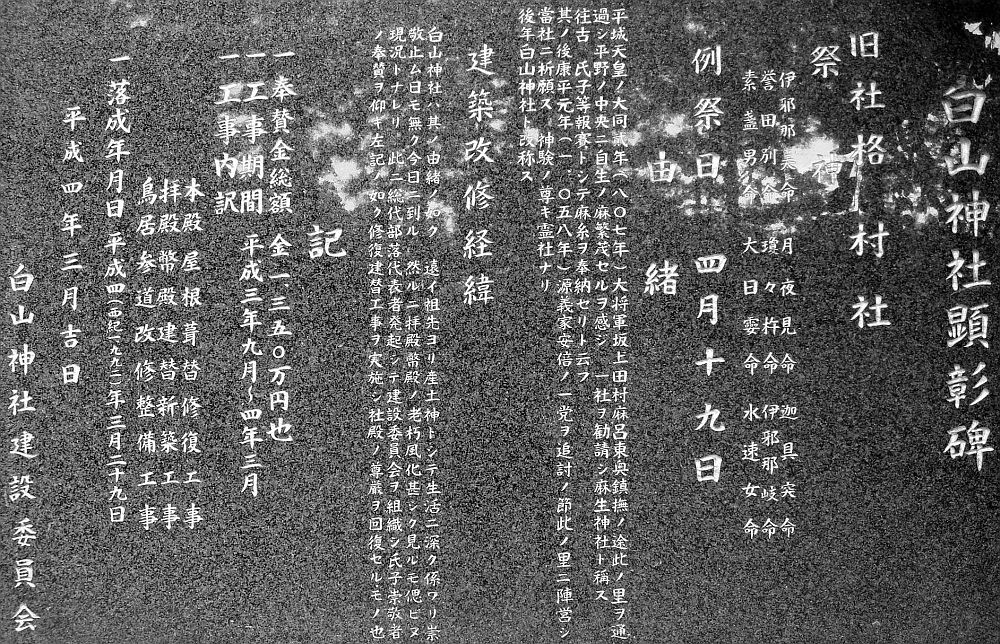 白山神社顕彰碑
旧社格村社
祭神
伊耶那美命 月夜見命 迦具突命
誉田別命 瓊々杵命 伊耶那岐命
素盞男命 大日孁命 水速女命
例祭日 四月十九日
由緒
平城天皇ノ大同貳年(八〇七年)大将軍坂上田村麻呂東奥鎮撫ノ途此ノ里ヲ通
過シ平野ノ中央ニ自生ノ麻繁茂セルヲ感シ一社ヲ勧請シ麻生神社ト稱ス
往古 氏子等報賽トシテ麻糸ヲ奉納セリト云フ
其ノ後康平元年(一、〇五八年)源義家安倍ノ一党ヲ追討ノ節此ノ里ニ陣営シ
當社ニ祈願ス 神験ノ尊キ霊社ナリ
後年白山神社ト改称ス
建築改修経緯
白山神社ハ其ノ由緒ノ如ク 遠イ祖先ヨリ産土神トシテ生活ニ深ク係ワリ崇
敬止ム日モ無ク今日ニ到ル 然ルニ拝殿幣殿ノ老朽風化甚シク見ルモ偲ビヌ
現況トナレリ 此ニ総代部落代表者発起シテ建設委員会ヲ組織シ氏子崇敬者
ノ奉賛ヲ仰ギ左記ノ如ク修復建替工事ヲ実施シ社殿ノ尊厳ヲ回復セルモノ也
記
一 奉賛金総額 金一、三五〇万円也
一 工事期間 平成三年九月~四年三月
一 工事内訳
本殿屋根葺替修復工事
拝殿幣殿建替新築工事
鳥居参道改修整備工事
一 落成年月日 平成四(西紀一九九二)年三月二十九日
平成四年三月吉日
白山神社建設委員会